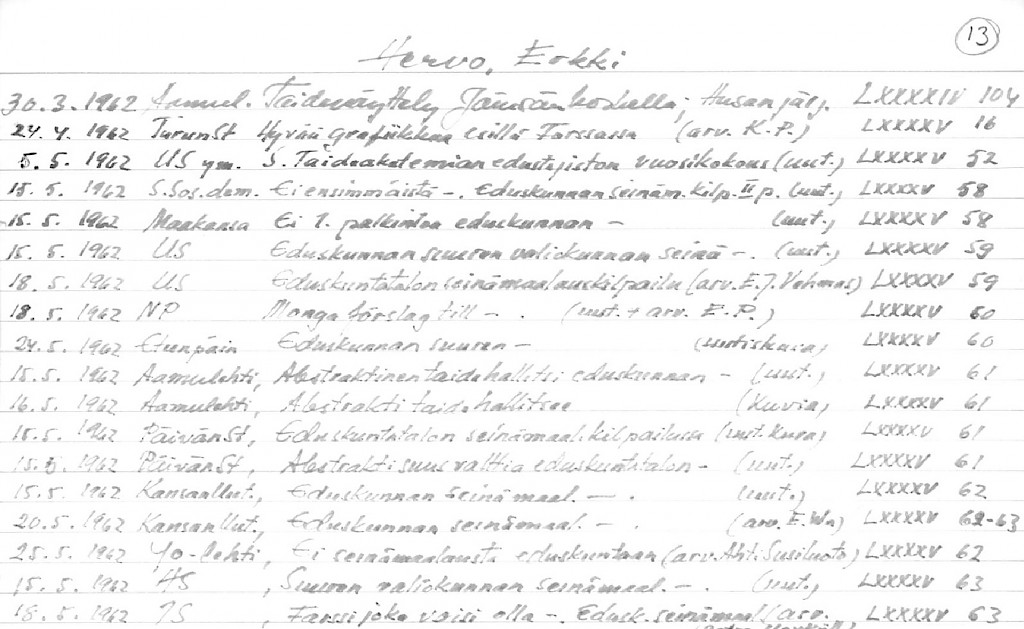 13
Hervo, Erkki
30.3.1962 Aamul. Taidenäyttely Jämsänkoskella; Husan järj. LXXXXIV 104
24.4.1962 TurunSt Hyvää grafiikkaa esillä Forssassa (arv. K.P.) LXXXXV 16
5.5.1962 US ym. S. Taideakatemian edustajiston vuosikokous (uut.) LXXXXV 52
15.5.1962 S.Sos.dem. Ei ensimmäistä -. Eduskunnan seinäm.kilp. II p. (uut.) LXXXXV 58
15.5.1962 Maakansa Ei 1. palkintoa eduskunnan - (uut.) LXXXXV 58
15.5.1962 US Eduskunnan suuren valiokunnan seinä -. (uut.) LXXXXV 59
18.5.1962 US Eduskuntatalon seinämaalauskilpailu (arv. E.J. Vehmas) LXXXXV 59
18.5.1962 NP Många förslag till - . (uut. + arv. E.P.) LXXXXV 60
24.5.1962 Eteenpäin Eduskunnan suuren - (uutiskuva) LXXXXV 60
15.5.1962 Aamulehti, Abstraktinen taide hallitsi eduskunnan - (uut.) LXXXXV 61
16.5.1962 Aamulehti, Abstrakti taide hallitsee (kuvia) LXXXXV 61
15.5.1962 PäivänSt, Eduskuntatalon seinämaal.kilpailussa (uut. kuva) LXXXXV 61
15.5.1962 PäivänSt, Abstraktisuus valttia eduskuntatalon - (uut.) LXXXXV 61
15.5.1962 KansanUut., Eduskunnan seinämaal. - . (uut.) LXXXXV 62
20.5.1962 KansanUut., Eduskunnan seinämaal. - . (arv. E.Wn) LXXXXV 62-63
25.5.1962 Yo-lehti, Ei seinämaalausta eduskuntaan (arv. Ahti Susiluoto) LXXXXV 62
15.5.1962 HS , Suuren valiokunnan seinämaal. - . (uut.) LXXXXV 63
18.5.1962 IS , Farssi joka voisi olla -. Edusk.seinämaal (arv. LXXXXV 63